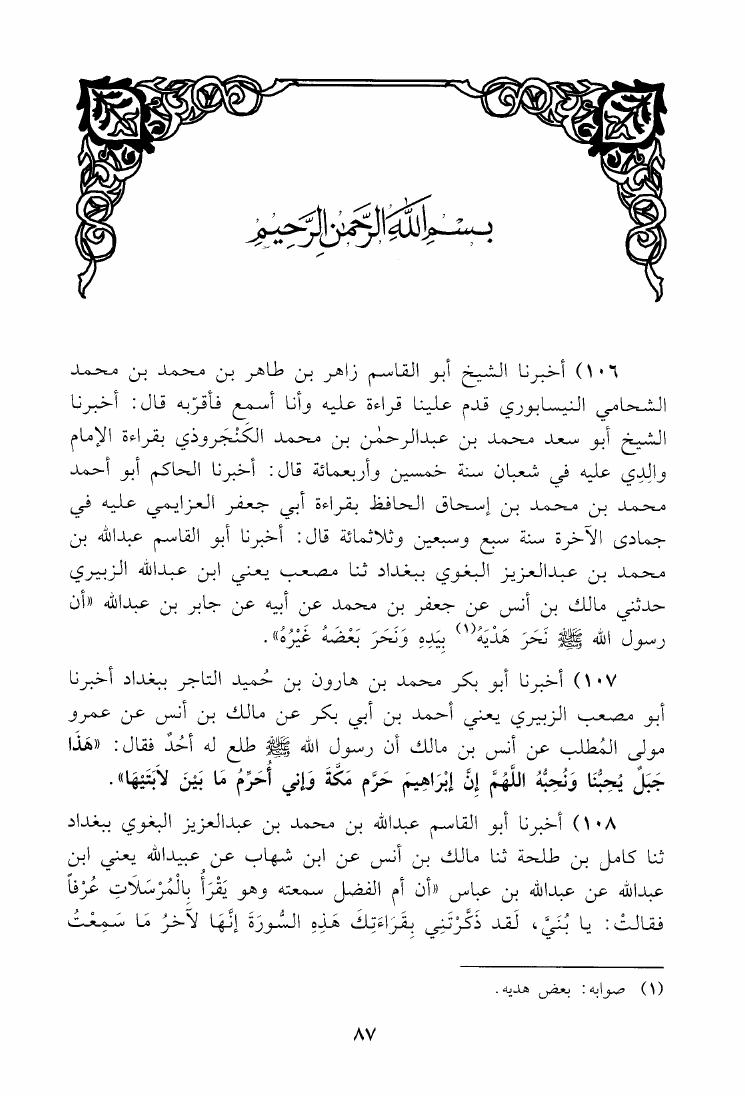 بسم الله الرحمن الرحيم
١٠٦) أخبرنا الشيخ أبو القاسم زاهر بن طاهر بن محمد بن محمد
الشحامي النيسابوري قدم علينا قراءة عليه وأنا أسمع فأقرّبه قال: أخبرنا
الشيخ أبو سعد محمد بن عبدالرحمٰن بن محمد الكَنْجَروذي بقراءة الإمام
والِدِي عليه في شعبان سنة خمسين وأربعمائة قال: أخبرنا الحاكم أبو أحمد
محمد بن محمد بن إسحاق الحافظ بقراءة أبي جعفر العزايمي عليه في
جمادى الآخرة سنة سبع وسبعين وثلاثمائة قال: أخبرنا أبو القاسم عبدالله بن
محمد بن عبدالعزيز البغوي ببغداد ثنا مصعب يعني ابن عبدالله الزبيري
حدثني مالك بن أنس عن جعفر بن محمد عن أبيه عن جابر بن عبدالله «أن
رسول الله ﷺ نَحَرَ هَدْيَهُ(١) بِيَدِهِ وَنَحَرَ بَعْضَهُ غَيْرُهُ».
١٠٧) أخبرنا أبو بكر محمد بن هارون بن حُميد التاجر ببغداد أخبرنا
أبو مصعب الزبيري يعني أحمد بن أبي بكر عن مالك بن أنس عن عمرو
مولى المُطلب عن أنس بن مالك أن رسول الله ﷺ طلع له أُحُدٌ فقال: «هَذَا
جَبَلٌ يُحِبُّنَا وَنُحِبُّهُ اللَّهُمَّ إِنَّ إِبْرَاهِيمَ حَرَّم مَكَّةَ وَإِني أُحَرِّمُ مَا بَيْنَ لاَبَتَيْهَا».
١٠٨) أخبرنا أبو القاسم عبدالله بن محمد بن عبدالعزيز البغوي ببغداد
ثنا كامل بن طلحة ثنا مالك بن أنس عن ابن شهاب عن عبيدالله يعني ابن
عبدالله عن عبدالله بن عباس «أن أم الفضل سمعته وهو يَقْرَأُ بِالْمُرْسَلَاتِ عُرْفاً
فقالتْ: يا بُنَيَّ، لَقد ذَكَّرْتَنِي بِقَرَاءَتِكَ هَذِهِ السُّورَةَ إِنَّهَا لآخرُ مَا سَمِعْتُ
(١) صوابه: بعض هديه.
٨٧